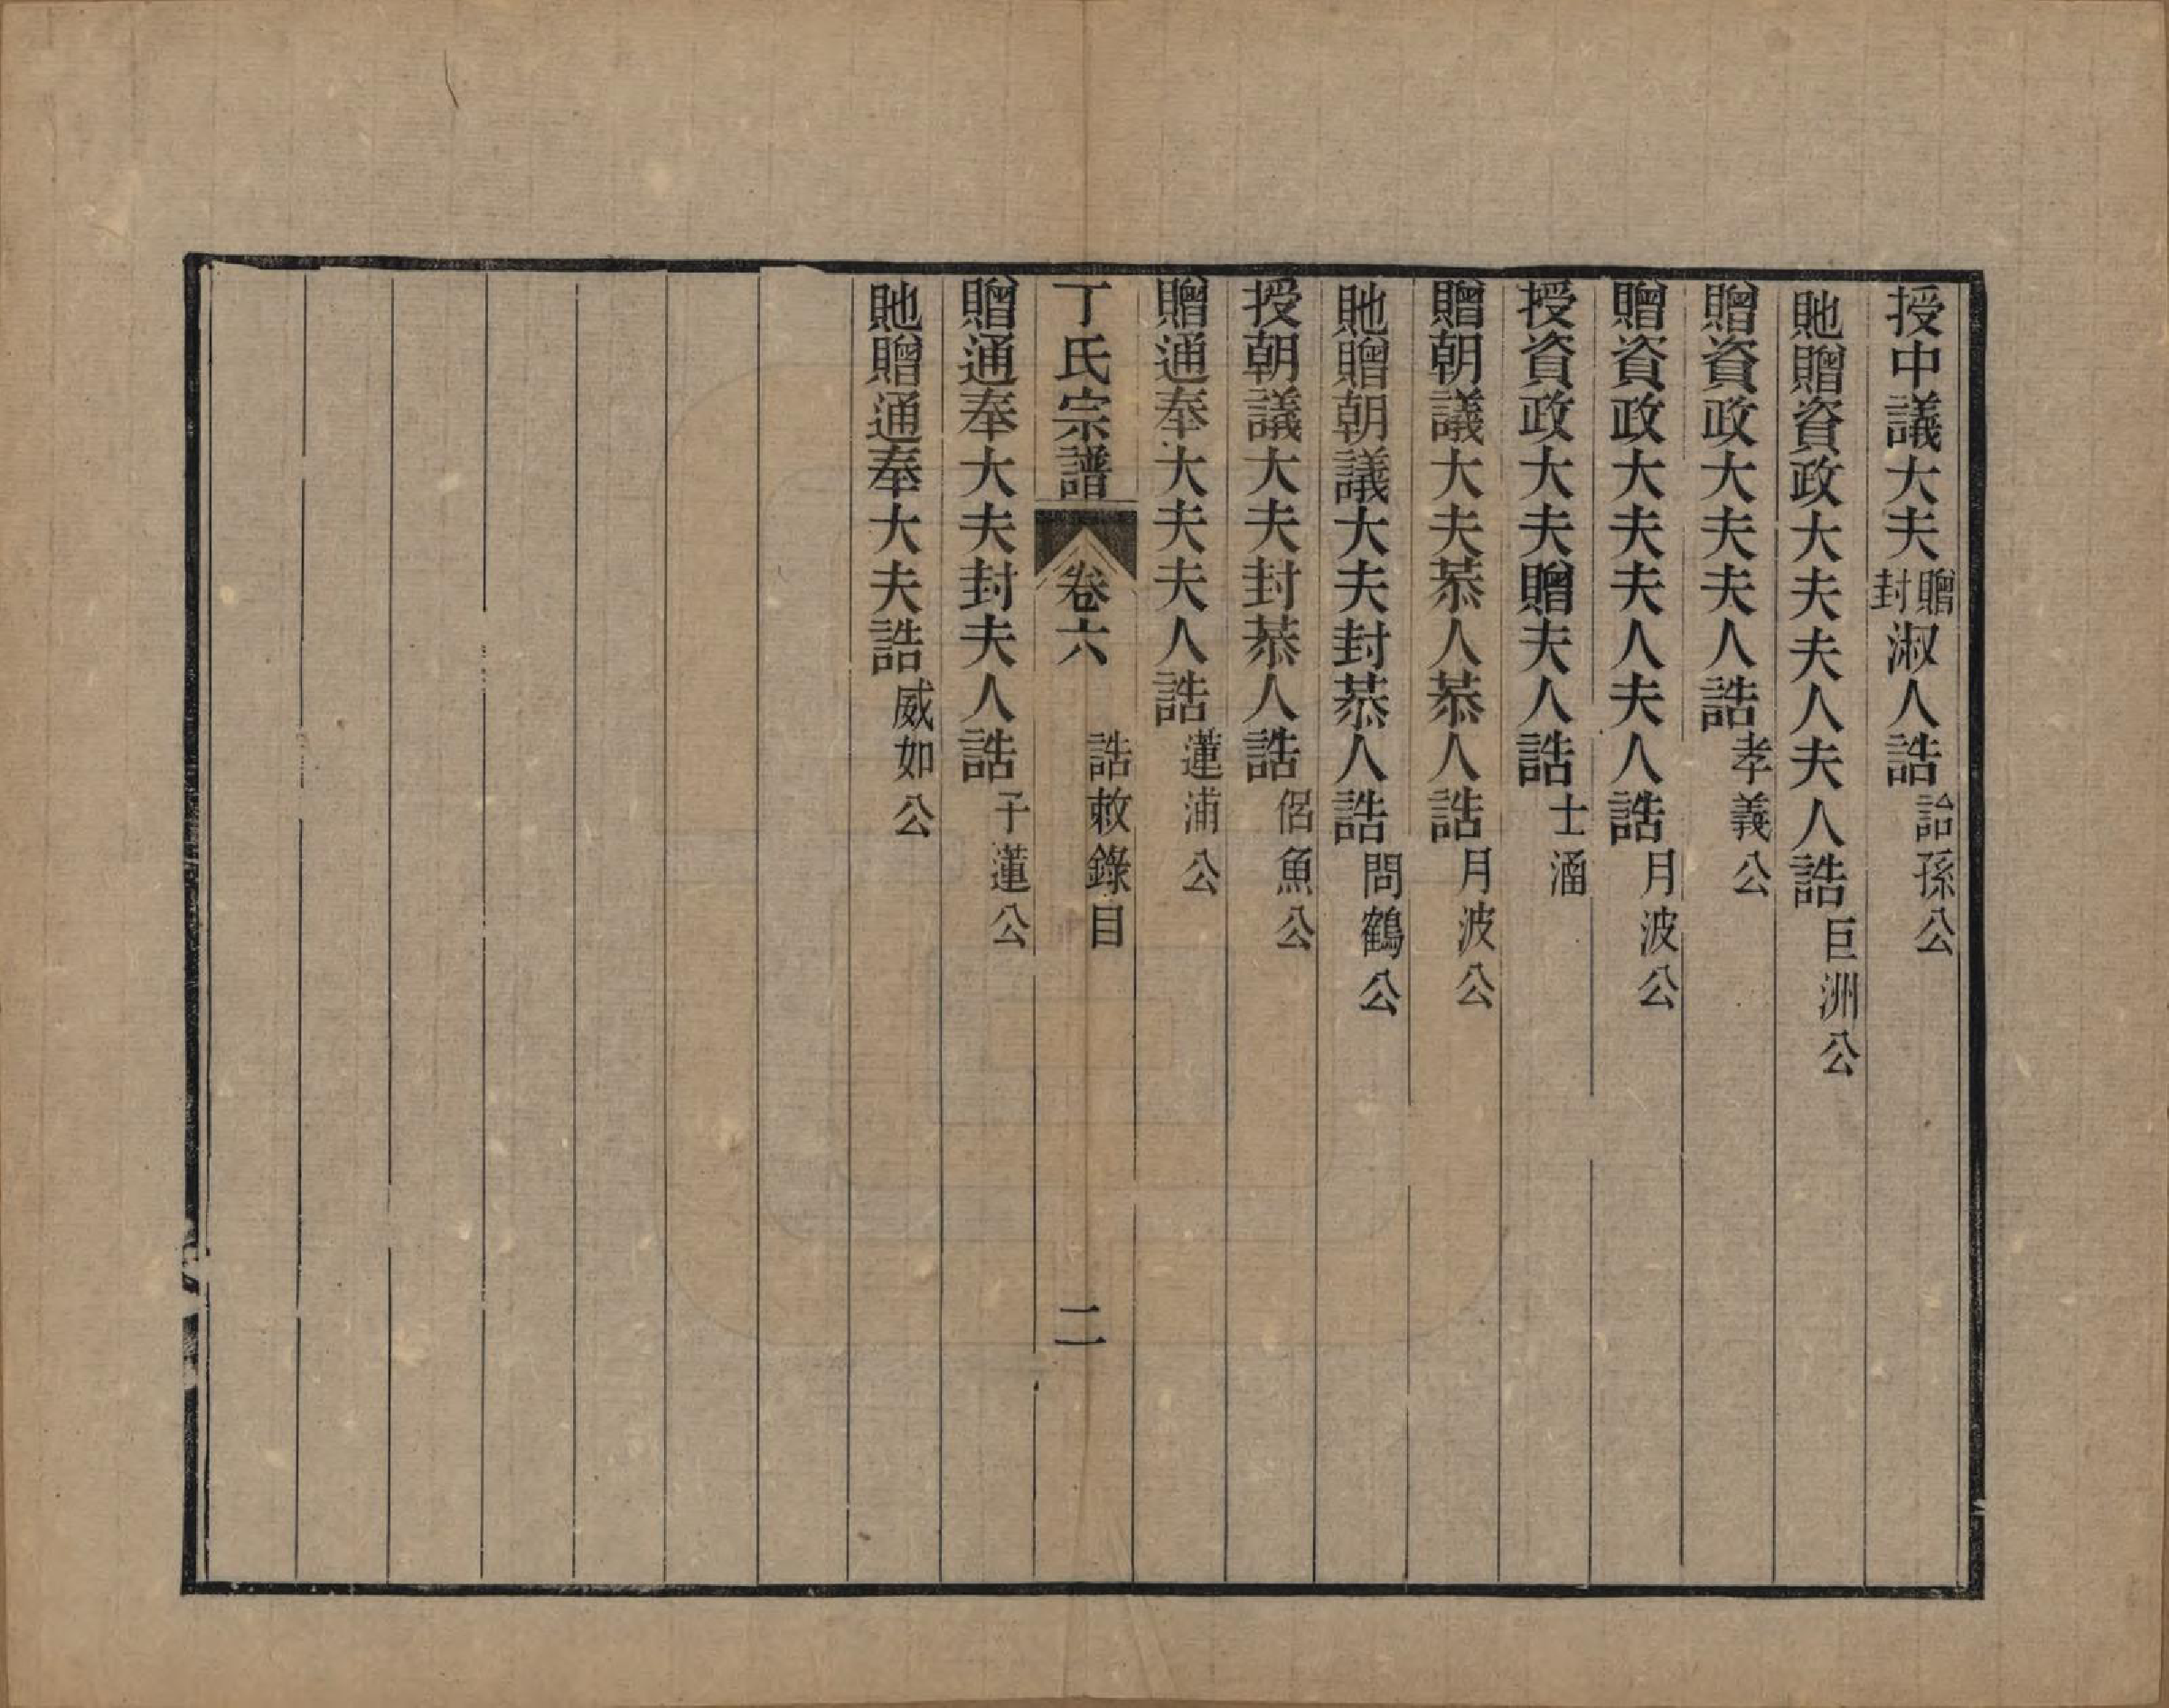 授中議大夫贈封淑人誥詒孫公
貤贈資政大夫夫人夫人誥巨洲公
贈資政大夫夫人誥孝義公
贈資政大夫夫人夫人誥月波公
授資政大夫贈夫人誥士涵
贈朝議大夫恭人恭人誥月波公
貤贈朝議大夫封恭人誥問鶴公
授朝議大夫封恭人誥侶魚公
贈通奉大夫夫人誥蓮浦公
丁氏宗譜 卷六 誥敕錄目 二
贈通奉大夫封夫人誥子蓮公
貤贈通奉大夫誥威如公